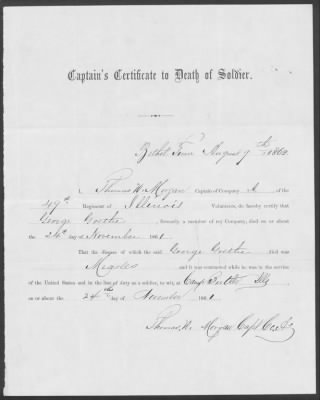 Captain's Certificate to Death of Soldier.
Bethel Tenn August 9th 1862
I, Thomas W. Morgan Captain of Company A of the
49th Regiment of Illinois Volunteers, do hereby certify that
George Goethe, formerly a member of my Company, died on or about
the 24th day of November 1861.
That the disease of which the said George Goethe died was
Measles and it was contracted while he was in the service
of the United States and in the line of duty as a soldier, to wit, at Camp Butler Ills
on or about the 24th day of November 1861.
Thomas W. Morgan Capt Co A